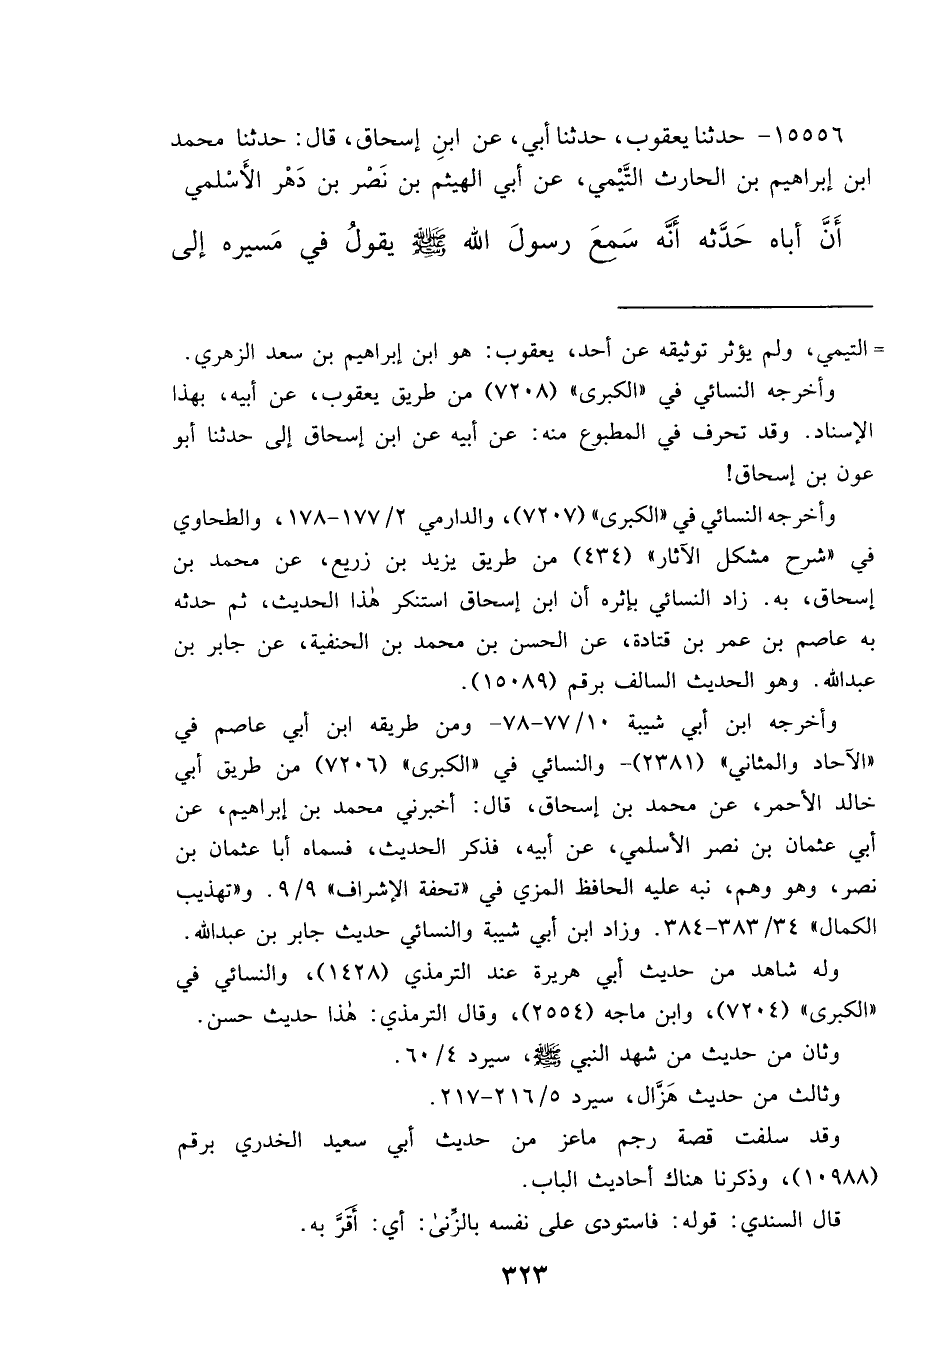 ١٥٥٥٦- حدثنا يعقوب، حدثنا أبي، عن ابنِ إسحاق، قال: حدثنا محمد
ابن إبراهيم بن الحارث التَّيْمي، عن أبي الهيثم بن نَصْر بن دَهْر الأَسْلمي
أَنَّ أباه حَدَّثه أَنَّه سَمِعَ رسولَ الله ﷺ يقولُ في مَسيره إلى
= التيمي، ولم يؤثر توثيقه عن أحد، يعقوب: هو ابن إبراهيم بن سعد الزهري.
وأخرجه النسائي في «الكبرى» (٧٢٠٨) من طريق يعقوب، عن أبيه، بهذا
الإسناد. وقد تحرف في المطبوع منه: عن أبيه عن ابن إسحاق إلى حدثنا أبو
عون بن إسحاق!
وأخرجه النسائي في «الكبرى» (٧٢٠٧)، والدارمي ١٧٧/٢-١٧٨، والطحاوي
في «شرح مشكل الآثار» (٤٣٤) من طريق يزيد بن زريع، عن محمد بن
إسحاق، به. زاد النسائي بإثره أن ابن إسحاق استنكر هٰذا الحديث، ثم حدثه
به عاصم بن عمر بن قتادة، عن الحسن بن محمد بن الحنفية، عن جابر بن
عبدالله. وهو الحديث السالف برقم (١٥٠٨٩).
وأخرجه ابن أبي شيبة ٧٧/١٠-٧٨- ومن طريقه ابن أبي عاصم في
«الآحاد والمثاني» (٢٣٨١)- والنسائي في «الكبرى» (٧٢٠٦) من طريق أبي
خالد الأحمر، عن محمد بن إسحاق، قال: أخبرني محمد بن إبراهيم، عن
أبي عثمان بن نصر الأسلمي، عن أبيه، فذكر الحديث، فسماه أبا عثمان بن
نصر، وهو وهم، نبه عليه الحافظ المزي في «تحفة الإشراف» ٩/٩. و«تهذيب
الكمال» ٣٨٣/٣٤-٣٨٤. وزاد ابن أبي شيبة والنسائي حديث جابر بن عبدالله.
وله شاهد من حديث أبي هريرة عند الترمذي (١٤٢٨)، والنسائي في
«الكبرى» (٧٢٠٤)، وابن ماجه (٢٥٥٤)، وقال الترمذي: هٰذا حديث حسن.
وثان من حديث من شهد النبي ﷺ، سيرد ٦٠/٤.
وثالث من حديث هَزَّال، سيرد ٢١٦/٥-٢١٧.
وقد سلفت قصة رجم ماعز من حديث أبي سعيد الخدري برقم
(١٠٩٨٨)، وذكرنا هناك أحاديث الباب.
قال السندي: قوله: فاستودى على نفسه بالزِّنىٰ: أي: أَقَرَّ به.
٣٢٣